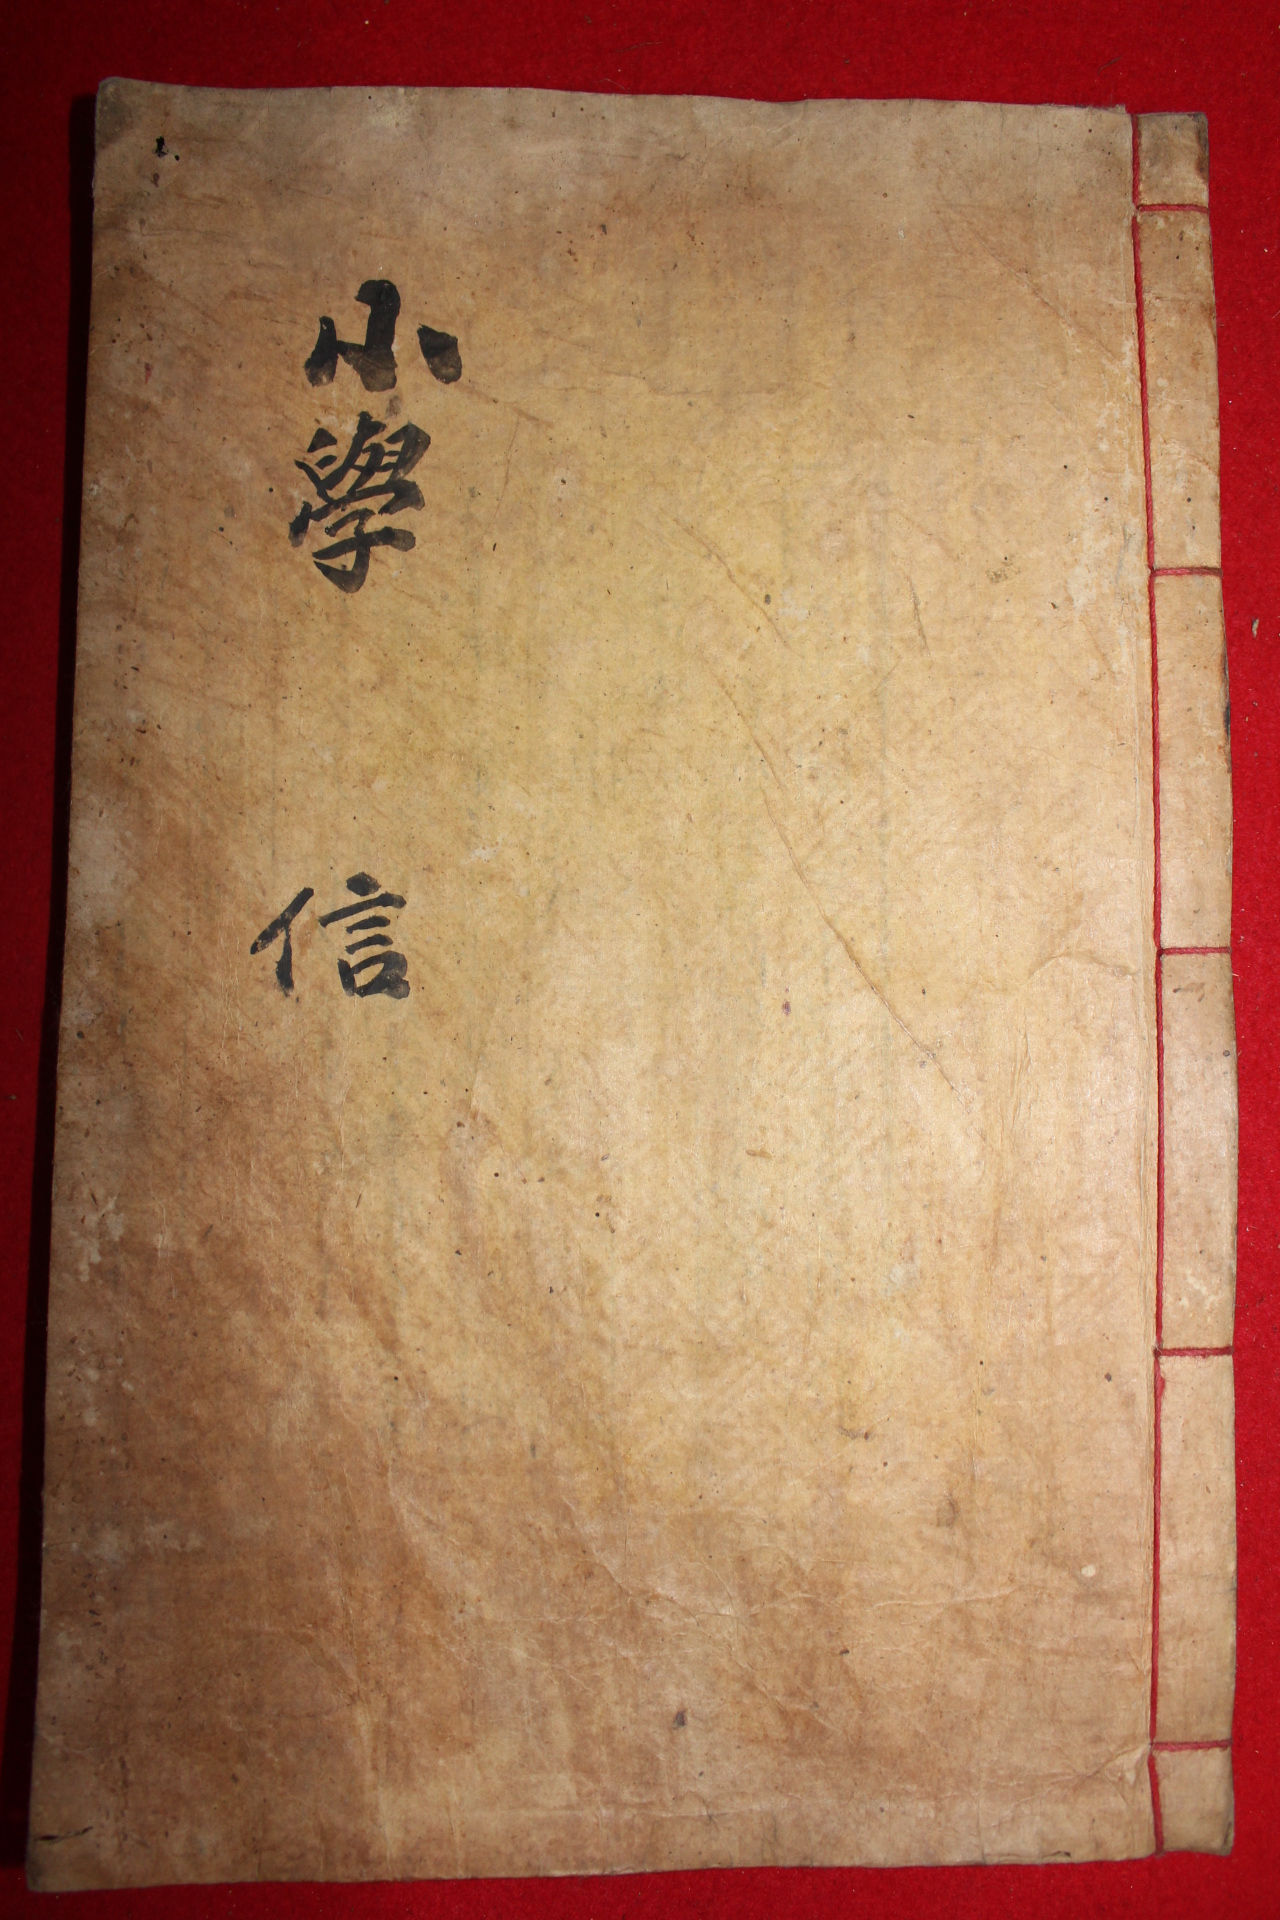 小學
信